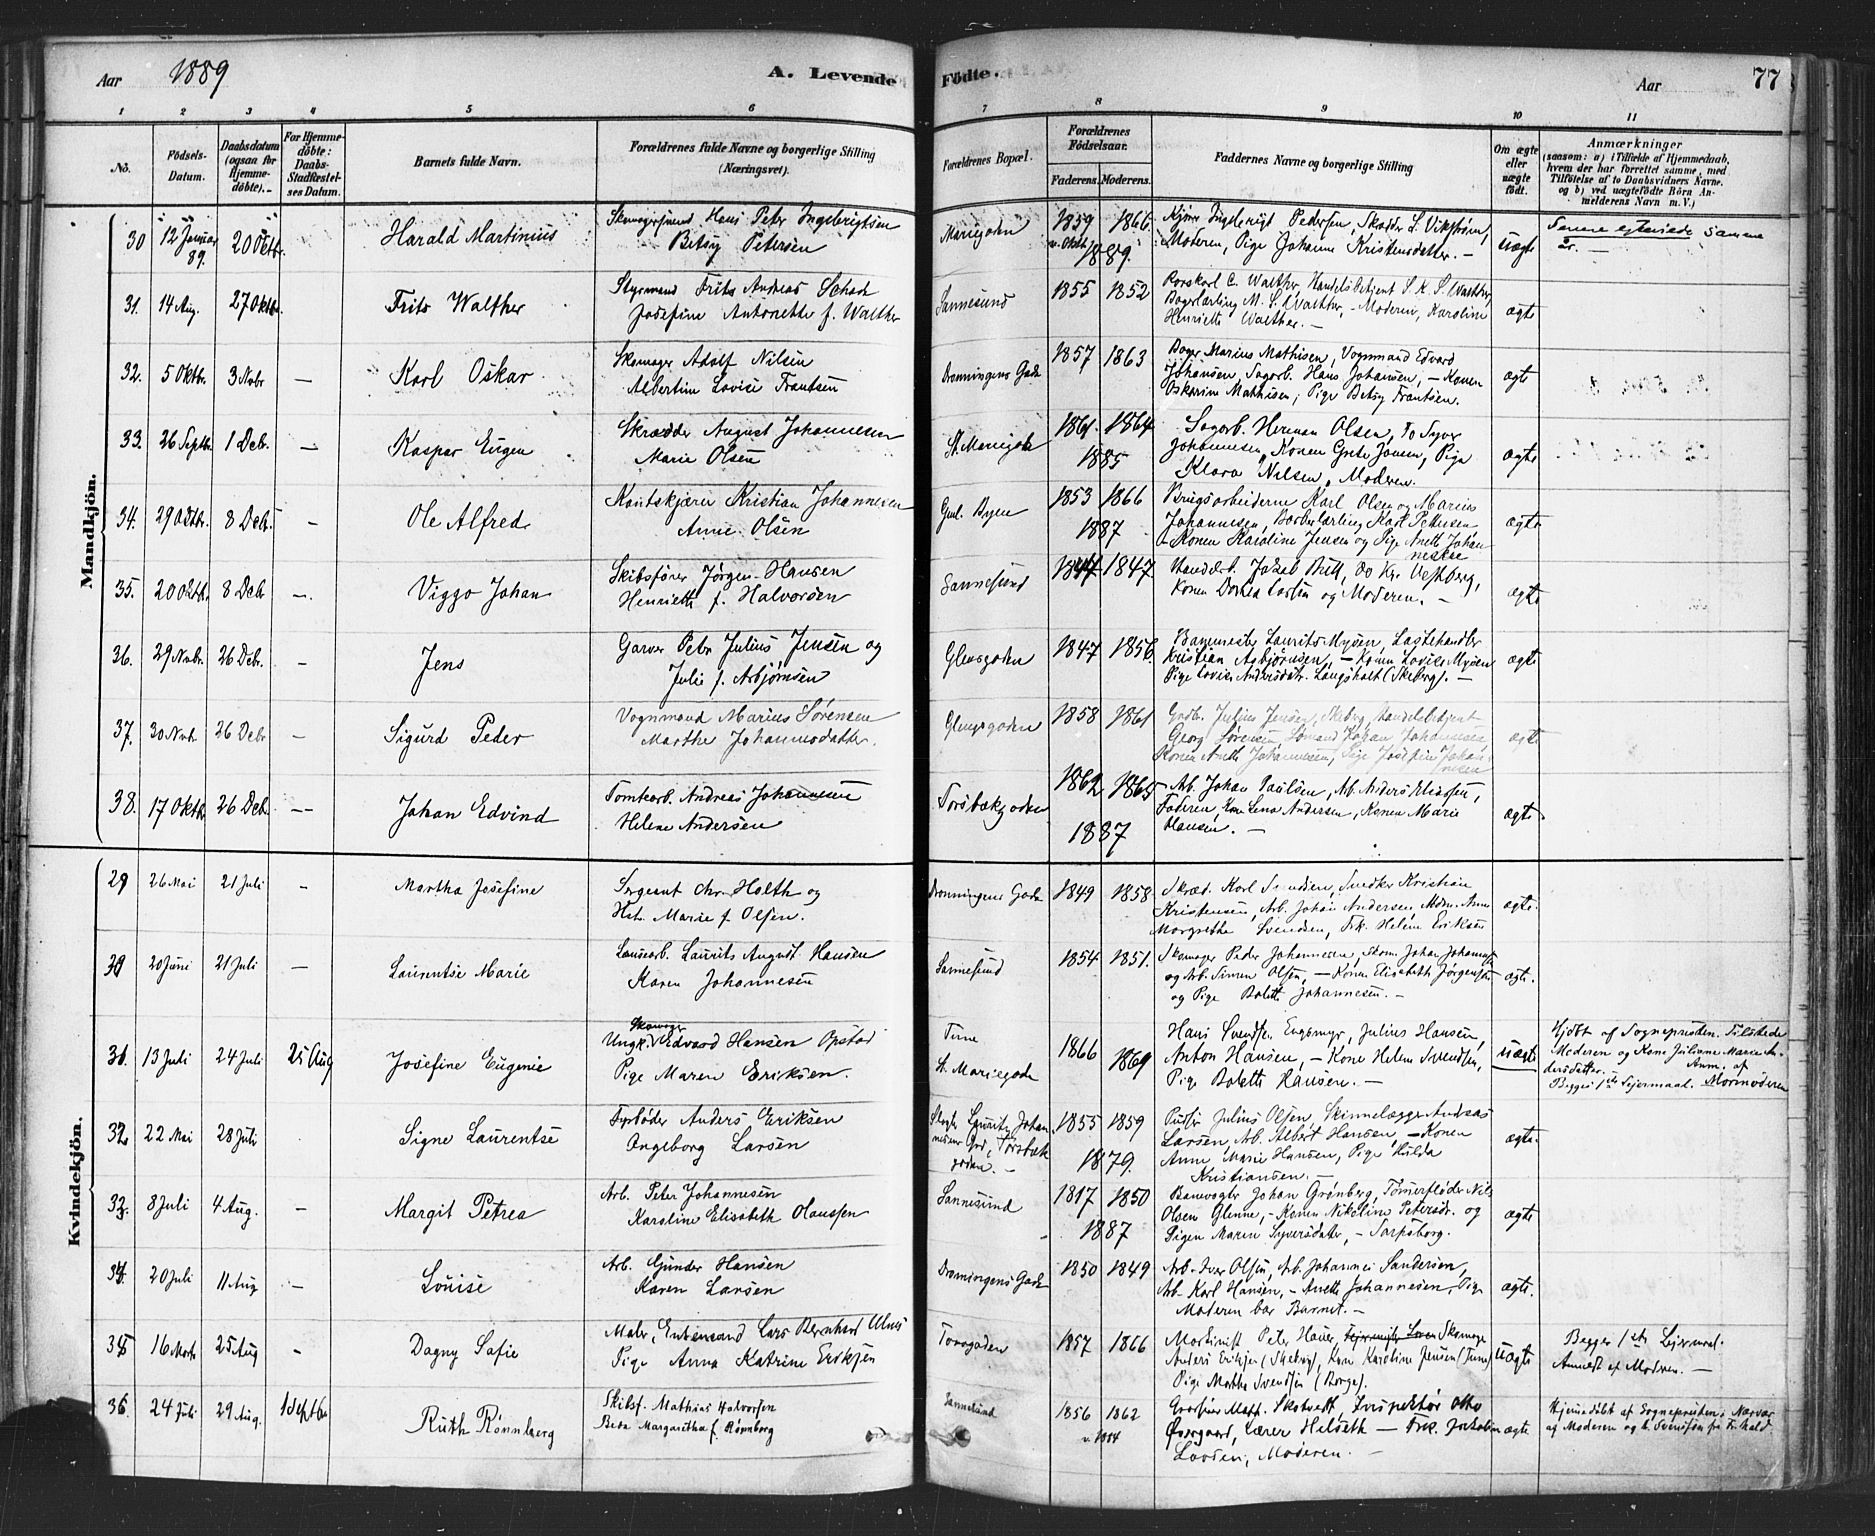 Aar 1889 A. Levende Fødte. Aar 77
1 2 3 4 5 6 7 8 9 10 11
No.
Fødsels-
Datum.
Daabsdatum
(ogsaa for
Hjemme-
døbte).
For Hjemme-
døbte:
Daabs-
Stadfæstel-
ses Datum.
Barnets fulde Navn.
Forældrenes fulde Navne og borgerlige Stilling
(Næringsvei).
Forældrenes Bopæl.
Forældrenes
Fødselsaar.
Faderens. Moderens.
Faddernes Navne og borgerlige Stilling
Om ægte
eller
uægte
født.
Anmærkninger
(saasom: a) i Tilfælde af Hjemmedaab,
hvem der har forrettet samme, med
Tilføielse af to Daabsvidners Navne,
og b) ved uægtefødte Børn An-
melderens Navn m. V.)
Mandkjön.
30 12 Januar 89. 20 Oktbr. Harald Martinius
Skomagersvend Hans Peter Ingebrigtsen
Betsy Petersen
Mariegaden 1859 1866
v. Oktbr 1889.
Ingebrigt Pedersen, Skrædder L. Vikstrøm,
Moderen, Pige Johanne Kristensdatter. —
uægte
Senere egteviede samme
31. 14 Aug. 27 Oktbr. Frits Walther
Styrmand Frits Andreas Schade
Josefine Antonette f. Walther
Sannesund 1855 1852
C. Walther, Handelsbetjent S. K. S. Walther,
Bagerlærling M. S. Walther, - Moderen, Karoline
Henriette Walther. —
ægte
32. 5 Oktbr. 3 Novbr — Karl Oskar
Skomager Adolf Nilsen
Albertine Lovise Frantsen
Dronningens Gade 1857 1863
Bager Marius Mathisen, Vognmand Edvard
Johansen, Sagarb. Hans Johansen, — Konen
Oskarine Mathisen, Pige Betsy Frantsen.
ægte
33. 26 Septbr. 1 Deb. — Kaspar Eugen
Skrædder August Johannesen
Marie Olsen
St. Mariegade 1861. 1864
1885
Sagarb. Herman Olsen, Do Syver
Johannesen, Konen Grete Jensen, Pige
Klara Nilsen, Moderen.
ægte
34. 29 Oktbr. 8 Deb. — Ole Alfred
Kristian Johannesen
Anne Olsen
Gml. Byen 1853 1866
1887
Brugsarbeiderne Karl Olsen og Marius
Johannesen, Barberlærling Karl Pettersen
— Konen Karoline Jensen og Pige Anette Johan-
nesen
ægte
35. 20 Oktbr. 8 Deb — Viggo Johan
Skibsfører Jørgen Hansen
Henriette f. Halvorsen
Sannesund 1847 1847
Jakob Britt, do Kr. Vestberg,
Konen Dorthea Larsen og Moderen. —
ægte
36. 29 Novbr. 26 Deb. — Jens
Garver Peter Julius Jensen og
Julie f. Asbjørnsen
Glengsgaden 1847 1856
Laurits Mysen,
Kristian Asbjørnsen, — Konen Lovise Mysen
Pige Lovise Andersdtr. Langsholt (Skeberg). —
ægte
37. 30 Novb. 26 Debr — Sigurd Peder
Vognmand Marius Sørensen
Marthe Johannesdatter.
Glengsgaden 1858 1861
Gadb. Julius Jensen, Skeberg, Handelsbetjent
Georg Sørensen, Sømand Johan Johannesen
Konen Anette Johannesen, Pige Josefine Johan-
nesen
ægte
38. 17 Oktbr. 26 Deb. — Johan Edvind
Tomtearb. Andreas Johannesen
Helene Andersen
Torsbækgaden 1862 1865
1887
Arb. Johan Paulsen, Arb. Anders Eliassen,
Faderen, Kone Lena Andersen, Konen Marie
Hansen. —
ægte
Kvindekjön.
29 26 Mai 21 Juli — Martha Josefine
Sergeant Chr. Holth og
Marie f. Olsen.
Dronningens Gade 1849 1858
Skræd. Karl Svendsen, Snedker Kristian
Kristensen, Arb. Johan Andersen, Mdm. Anne
Margrethe Svendsen, Frk. Helene Eriksen
ægte.
30 20 Juni 21 Juli — Laurintse Marie
Laurits August Hansen
Karen Johannesen
Sannesund 1854 1851.
Skomager Peder Johannesen, Skom. Johan Johannesen
og Arb. Simen Olsen, — Konen Elisabeth Jørgensen
og Pige Bolette Johannesen. —
ægte.
31 13 Juli 24 Juli 25 Aug Josefine Eugenie
Skomager
Ungk. Edvard Hansen Opstad
Pige Maren Eriksen.
Tune
St. Mariegade 1866 1869
Hans Svendsen Engsmyr, Julius Hansen,
Anton Hansen, — Kone Helene Svendsen,
Pige Bolette Hansen. —
uægte
Hjdbt af Sognepresten. Tilstede
Moderen og Kone Juliane Marie An-
dersdatter. — Anm. af
Begges 1ste Leiermaal. Mormoderen
32 22 Mai 28 Juli Signe Laurentse
Fyrbøder Anders Eriksen
Ingeborg Larsen
Laurits Johan-
nesens Grd, Torsbæk-
gaden. — 1855 1859
1879.
Pudser Julius Olsen, Skinnelægger Andreas
Larsen, Arb. Albert Hansen, — Konen
Anne Marie Hansen, Pige Hulda
Kristiansen. —
ægte.
33. 8 Juli 4 Aug. — Margit Petrea
Arb. Peter Johannesen
Karoline Elisabeth Olaussen
Sannesund 1817 1850
1887
Banevogter Johan Grønberg, Tømmerfløder Nils
Olsen Glenne, - Konen Nikoline Petersdr. og
Pigen Maren Syversdatter, — Sarpsborg.
ægte
34. 20 Juli 11 Aug — Louise
Arb. Gunder Hansen
Karen Larsen
Dronningens Gade 1850 1849
Arb. Iver Olsen, Arb. Johannes Sandersen,
Arb. Karl Hansen, — Anette Johannesen, Pige
Moderen bar Barnet. —
ægte.
35 16 Marts 25 Aug — Dagny Sofie
Maler, Enkemand Lars Bernhard Ulnes
Pige Anna Katrine Eriksen
Torvgaden 1857 1866
Peter Hauer, Skomager
Anders Eriksen (Skeberg), Kone Karoline Jensen (Tune)
Pige Marthe Svendsen (Borge).
uægte
Begges 1ste Leiermaal.
Anmeldt af Moderen. —
36. 24 Juli 29 Aug. 1 Septbr Ruth Rømnberg
Skibsf. Mathias Halvorsen
Margaretha f. Rømnberg
Sannesund 1856 1862
v. 1884
Math. Skotvedt, Inspektør Otto
Overgaard, Lærer Helseth — Frk.
Moderen. —
ægte
Hjemmedøbt af Sognepresten; Nærvær
af Moderen og Svendsen fra Fr.hald